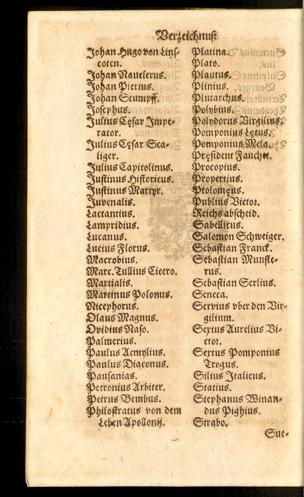 Verzeichnuß
Johan Hugo von Lins-
coten.
Johan Nauclerus.
Johan Pierius.
Johan Stumpff.
Josephus.
Julius Cęsar Impe-
rator.
Julius Cęsar Sca-
liger.
Julius Capitolinus.
Justinus Historicus.
Justinus Martyr.
Juvenalis.
Lactantius.
Lampridius.
Lucanus.
Lucius Florus.
Macrobius.
Marc. Tullius Cicero.
Martialis.
Martinus Polonus.
Nicephorus.
Olaus Magnus.
Ovidius Naso.
Palmerius.
Paulus Aemylius.
Paulus Diaconus.
Pausanias.
Petronius Arbiter.
Petrus Bembus.
Philostratus von dem
Leben Apollonij.
Platina.
Plato.
Plautus.
Plinius.
Plutarchus.
Polybius.
Polydorus Virgilius.
Pomponius Lętus.
Pomponius Mela.
Pręsident Fauchet.
Procopius.
Propertius.
Ptolomęus.
Publius Victor.
Reichsabscheid.
Sabellicus.
Salomon Schweiger.
Sebastian Franck.
Sebastian Munste-
rus.
Sebastian Serlius.
Seneca.
Servius vber den Vir-
gilium.
Sextus Aurelius Vi-
ctor.
Sextus Pomponius
Trogus.
Silius Italicus.
Statius.
Stephanus Winan-
dus Pighius.
Strabo.
Sue-